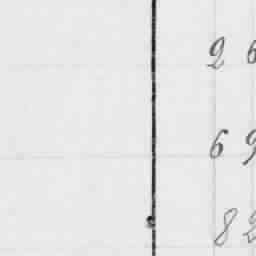 26
69
82